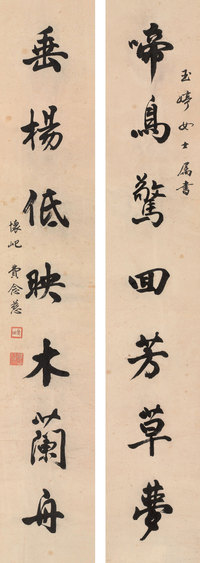 玉婷女士属书
啼鳥驚回芳草夢
垂楊低映木蘭舟
懷屺費念慈